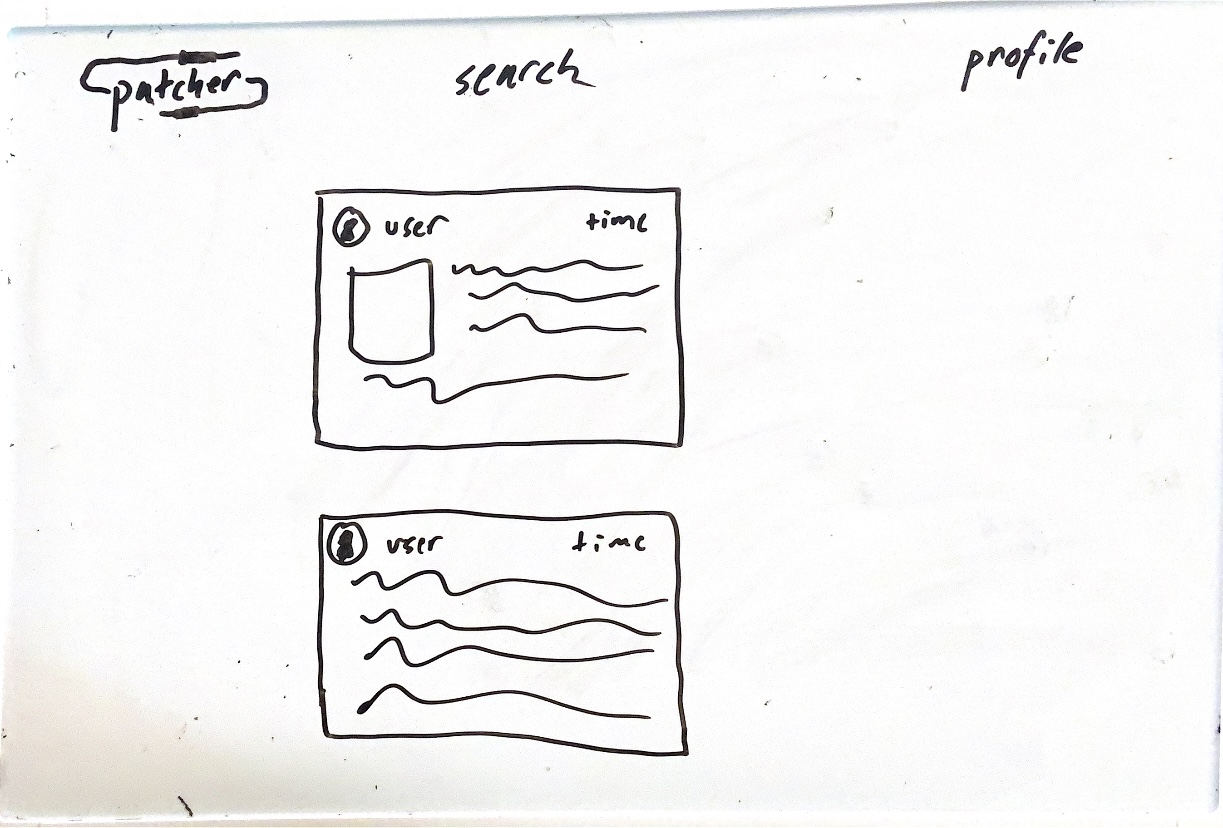 patcher search profile
user time
user time